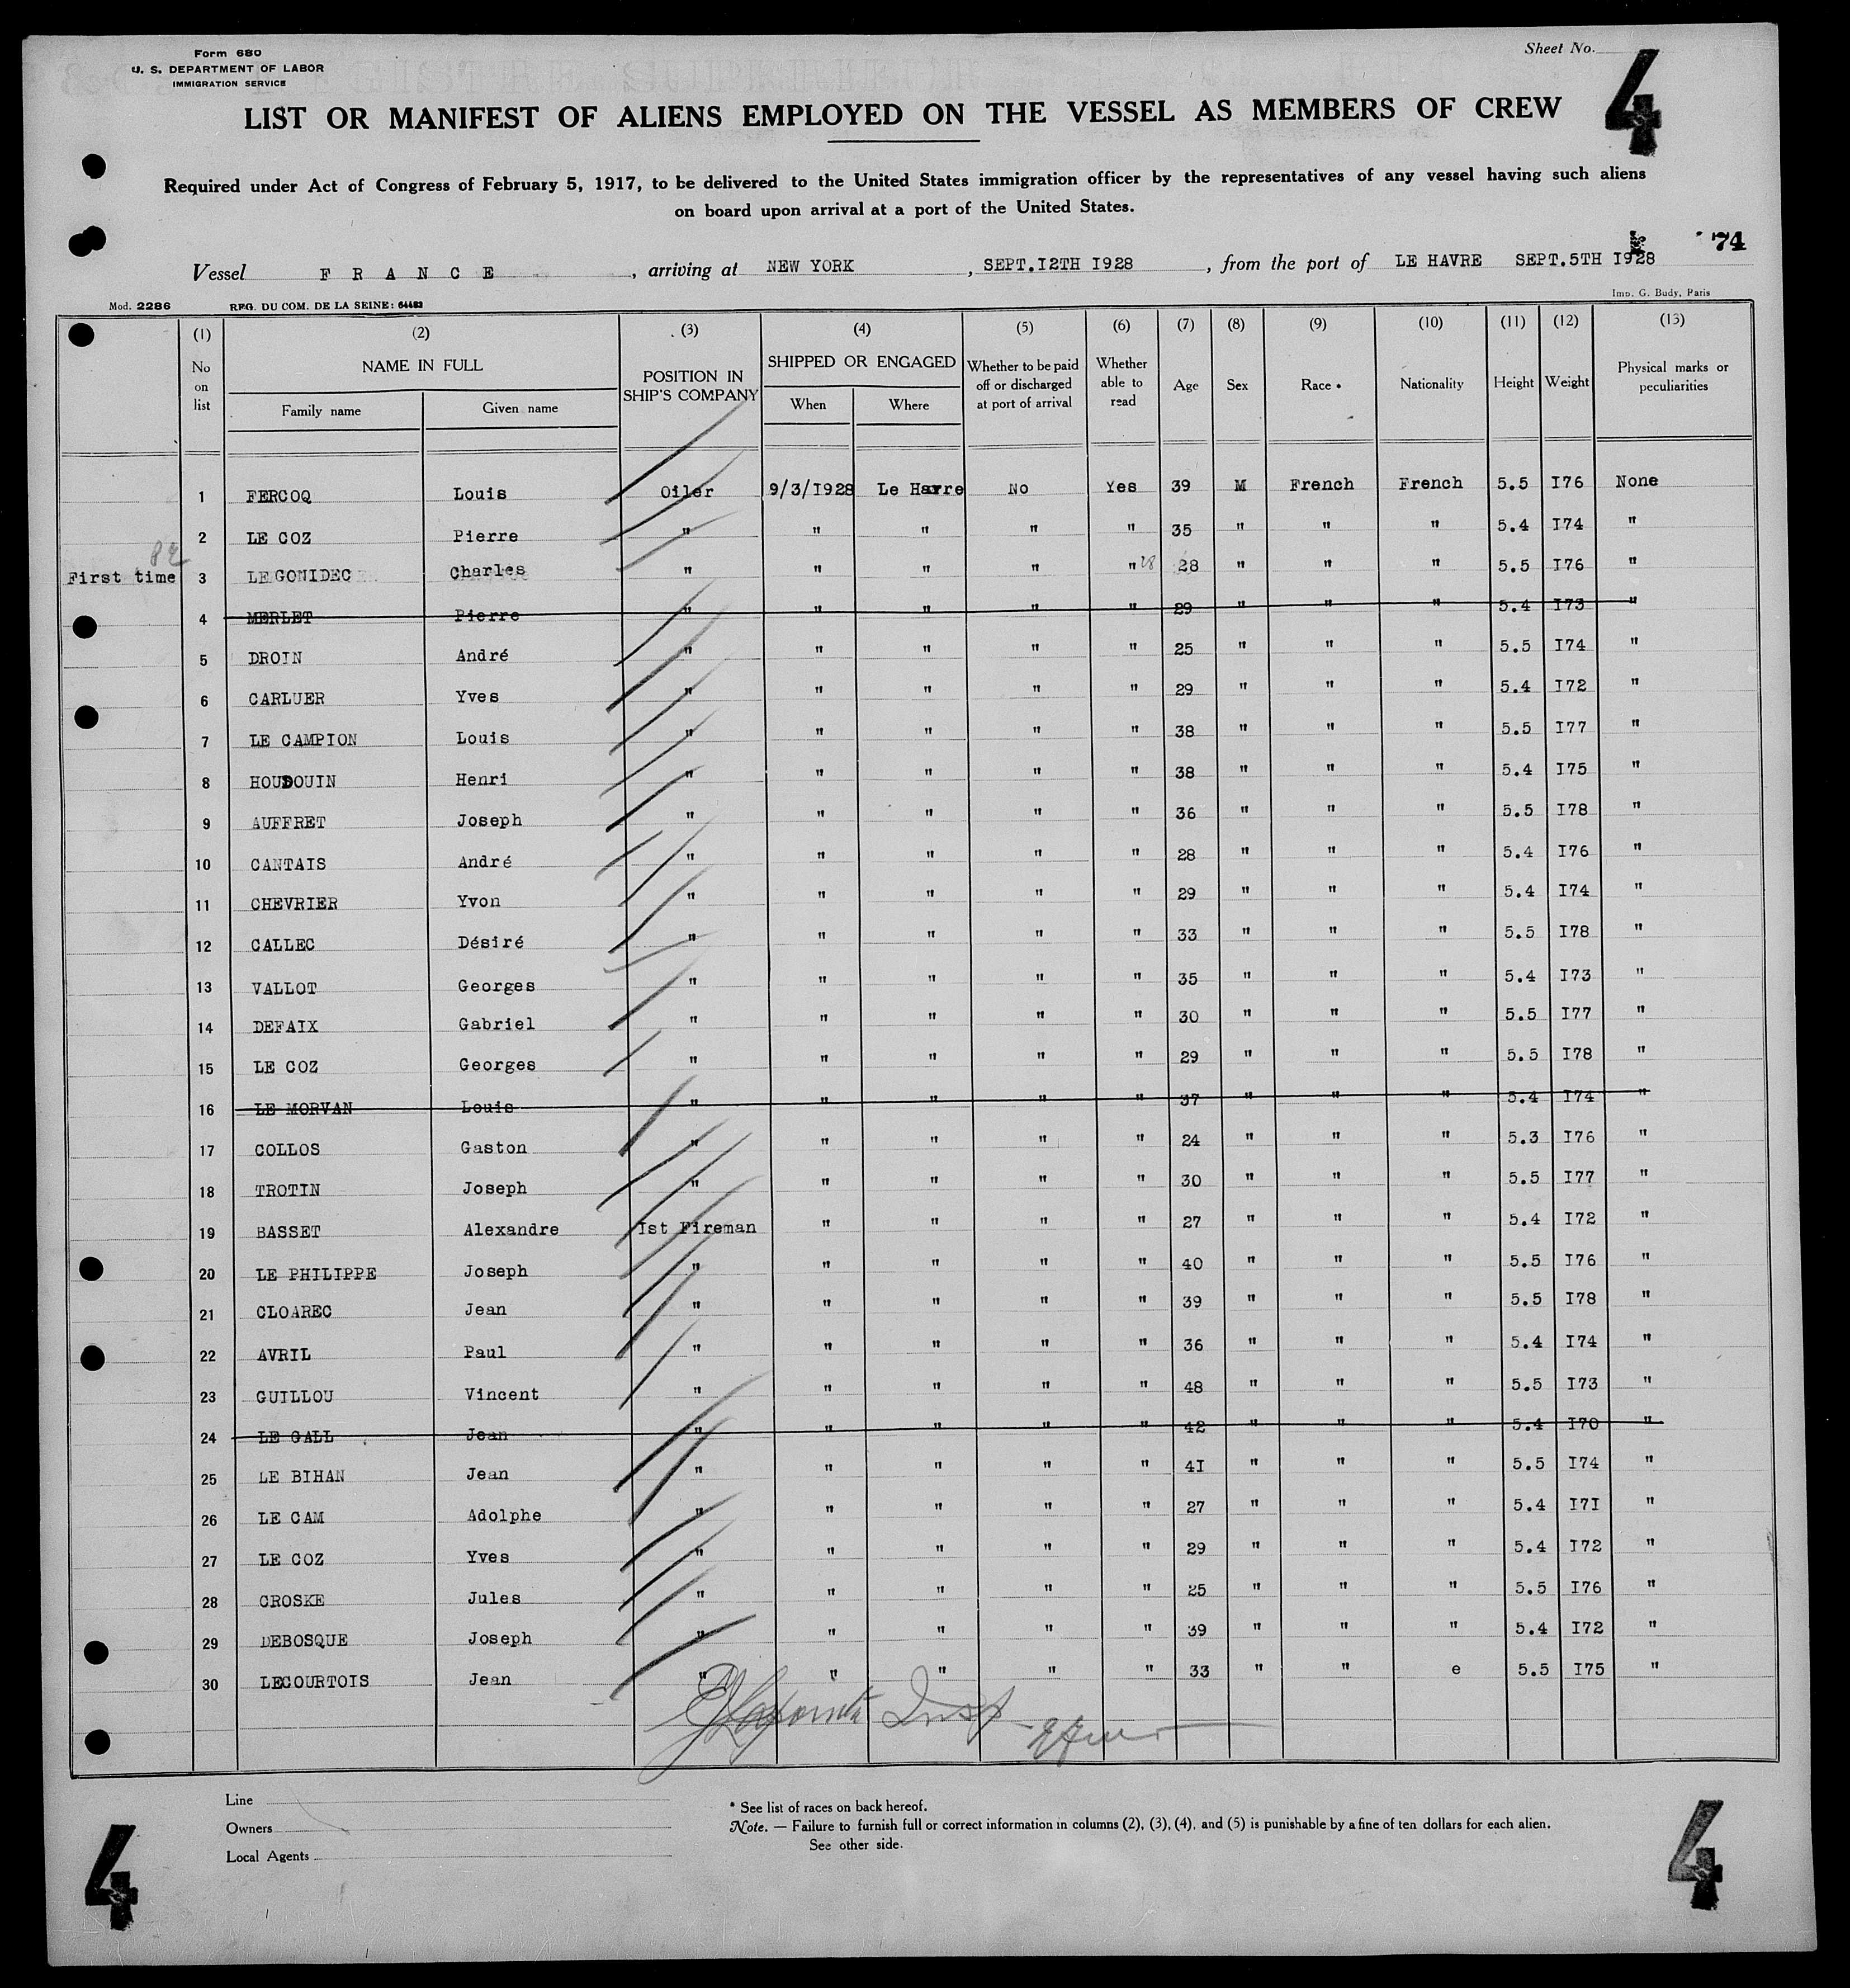 Form 680
U. S. DEPARTMENT OF LABOR
IMMIGRATION SERVICE
Sheet No.
4
LIST OR MANIFEST OF ALIENS EMPLOYED ON THE VESSEL AS MEMBERS OF CREW
Required under Act of Congress of February 5, 1917, to be delivered to the United States immigration officer by the representatives of any vessel having such aliens
on board upon arrival at a port of the United States.
74
Vessel F R A N C E , arriving at NEW YORK , SEPT.I2TH I928 , from the port of LE HAVRE SEPT.5TH I928
Mod. 2286 REG. DU COM. DE LA SEINE: 64483 Imp. G. Budy, Paris
(1) (2) (3) (4) (5) (6) (7) (8) (9) (10) (11) (12) (13)
No on list NAME IN FULL Family name Given name POSITION IN SHIP'S COMPANY SHIPPED OR ENGAGED When Where Whether to be paid off or discharged at port of arrival Whether able to read Age Sex Race * Nationality Height Weight Physical marks or peculiarities
1 FERCOQ Louis Oiler 9/3/I928 Le Havre No Yes 39 M French French 5.5 I76 None
2 LE COZ Pierre " " " " " 35 " " " 5.4 I74 "
82
First time 3 LE GONIDEC Charles " " " " " 28 28 " " " 5.5 I76 "
4 MERLET Pierre " " " " " 29 " " " 5.4 I73 "
5 DROIN André " " " " " 25 " " " 5.5 I74 "
6 CARLUER Yves " " " " " 29 " " " 5.4 I72 "
7 LE CAMPION Louis " " " " " 38 " " " 5.5 I77 "
8 HOUDOUIN Henri " " " " " 38 " " " 5.4 I75 "
9 AUFFRET Joseph " " " " " 36 " " " 5.5 I78 "
10 CANTAIS André " " " " " 28 " " " 5.4 I76 "
11 CHEVRIER Yvon " " " " " 29 " " " 5.4 I74 "
12 CALLEC Désiré " " " " " 33 " " " 5.5 I78 "
13 VALLOT Georges " " " " " 35 " " " 5.4 I73 "
14 DEFAIX Gabriel " " " " " 30 " " " 5.5 I77 "
15 LE COZ Georges " " " " " 29 " " " 5.5 I78 "
16 LE MORVAN Louis " " " " " 37 " " " 5.4 I74 "
17 COLLOS Gaston " " " " " 24 " " " 5.3 I76 "
18 TROTIN Joseph " " " " " 30 " " " 5.5 I77 "
19 BASSET Alexandre Ist Fireman " " " " 27 " " " 5.4 I72 "
20 LE PHILIPPE Joseph " " " " " 40 " " " 5.5 I76 "
21 CLOAREC Jean " " " " " 39 " " " 5.5 I78 "
22 AVRIL Paul " " " " " 36 " " " 5.4 I74 "
23 GUILLOU Vincent " " " " " 48 " " " 5.5 I73 "
24 LE GALL Jean " " " " " 42 " " " 5.4 I70 "
25 LE BIHAN Jean " " " " " 4I " " " 5.5 I74 "
26 LE CAM Adolphe " " " " " 27 " " " 5.4 I7I "
27 LE COZ Yves " " " " " 29 " " " 5.4 I72 "
28 CROSKE Jules " " " " " 25 " " " 5.5 I76 "
29 DEBOSQUE Joseph " " " " " 39 " " " 5.4 I72 "
30 LECOURTOIS Jean " " " " " 33 " " e 5.5 I75 "
Insp
Line
Owners
Local Agents
* See list of races on back hereof.
Note. — Failure to furnish full or correct information in columns (2), (3), (4), and (5) is punishable by a fine of ten dollars for each alien.
See other side.
4
4